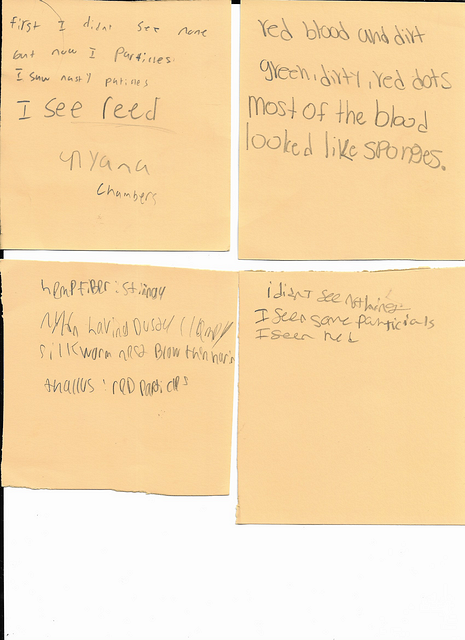 first I didnt see none
but now I particles
I saw nasty
I see reed
Nyana
Chambers
red blood and dirt
green, dirty, red dots
most of the blood
looked like sponges.
hemp fiber : stringy
silk worm nest Brow thin hair
thallus : red particles
i didnt see nothing
I seen some particials
I seen red